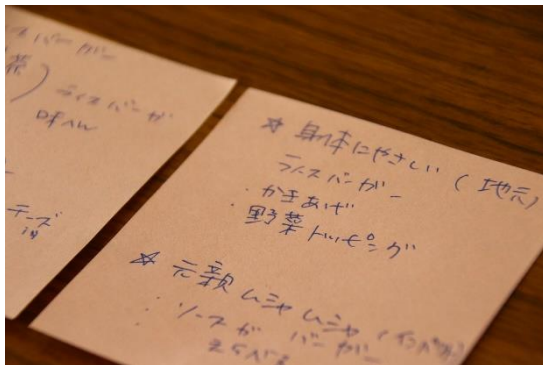 スバーガー
菜)
ライスバーガ
チーズ
☆ 身体にやさしい (地元)
ライスバーガー
・かきあげ
・野菜トッピング
☆ 元親ムシャムシャ
: ソースが バーガー
えらべる